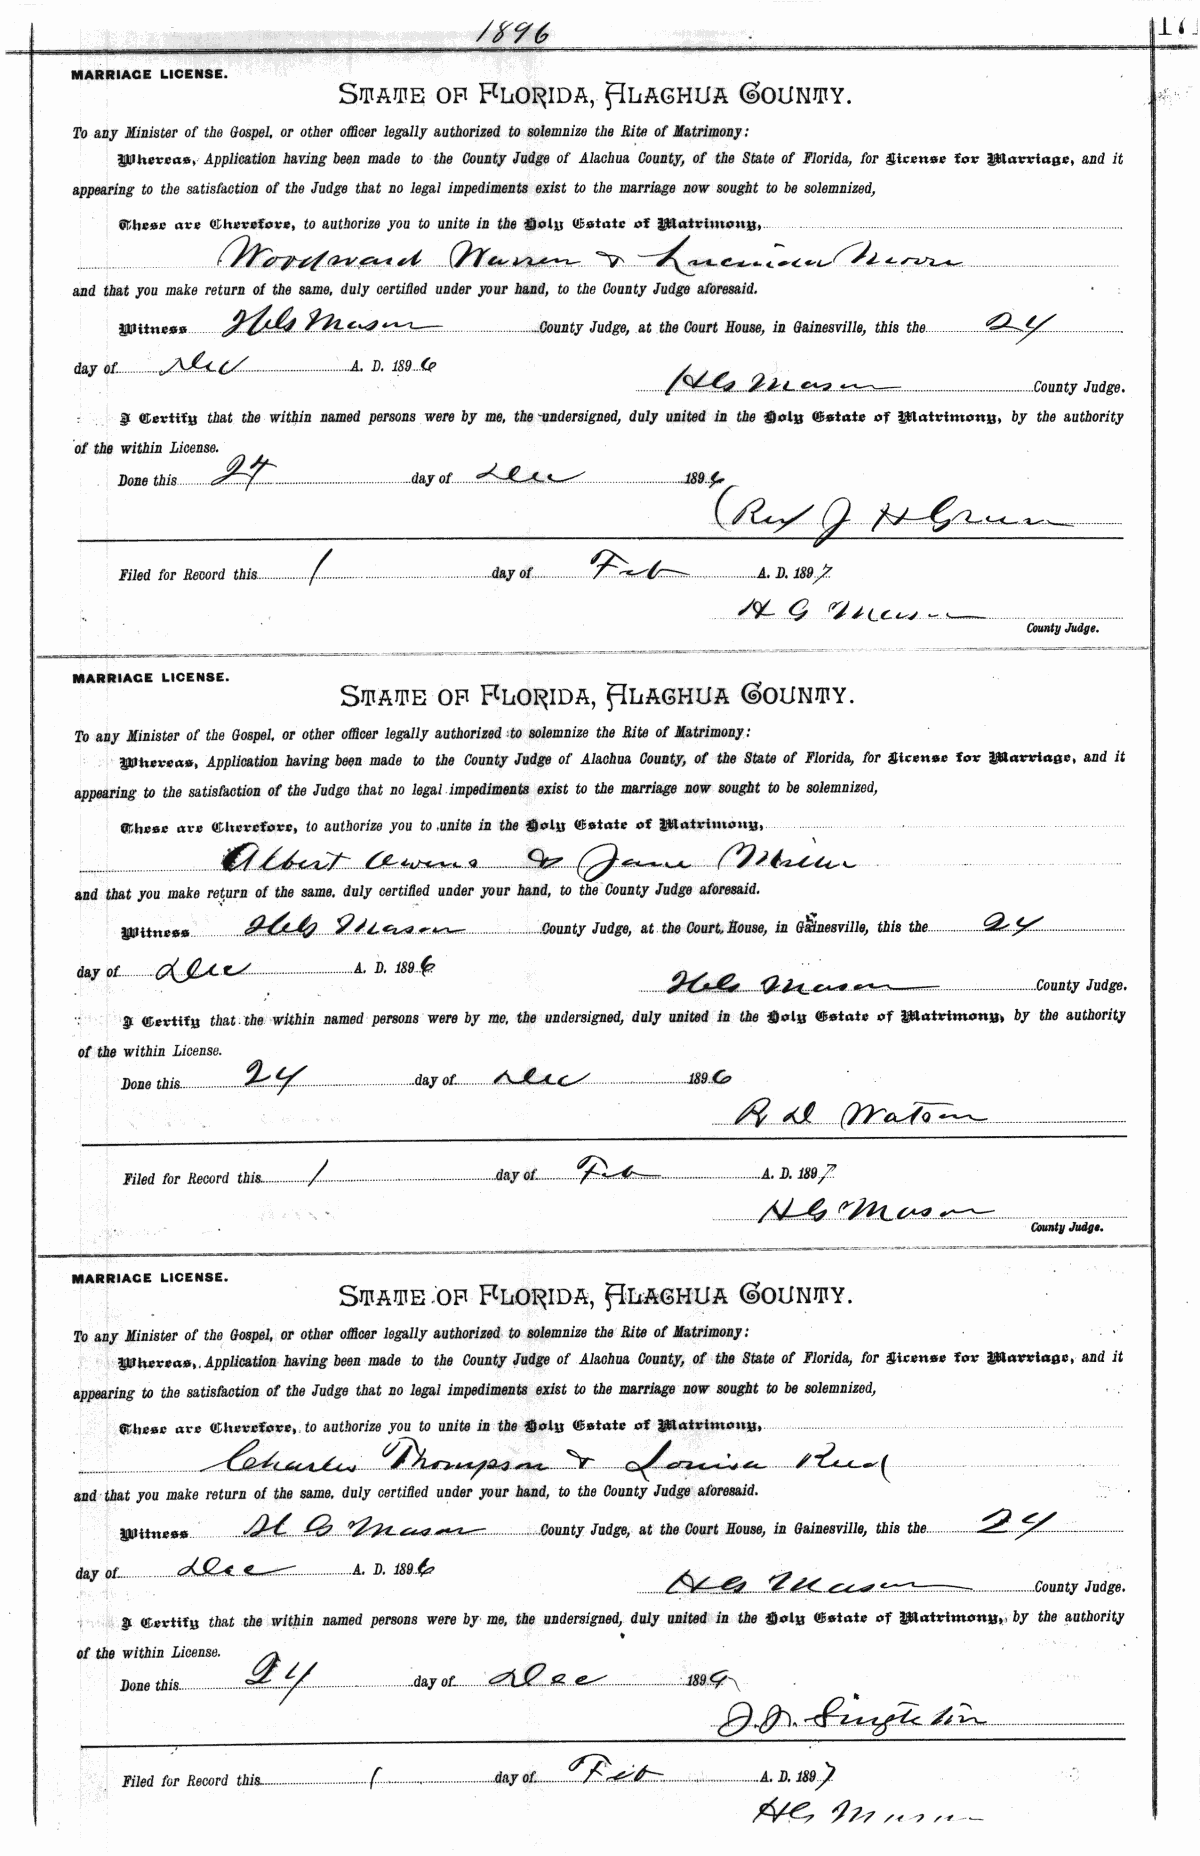 1896
171
MARRIAGE LICENSE.
STATE OF FLORIDA, ALACHUA COUNTY.
To any Minister of the Gospel, or other officer legally authorized to solemnize the Rite of Matrimony:
Whereas, Application having been made to the County Judge of Alachua County, of the State of Florida, for License for Marriage, and it
appearing to the satisfaction of the Judge that no legal impediments exist to the marriage now sought to be solemnized,
These are Therefore, to authorize you to unite in the Holy Estate of Matrimony,
Woodward Warren & Lucinda Moore
and that you make return of the same, duly certified under your hand, to the County Judge aforesaid.
Witness H G Mason County Judge, at the Court House, in Gainesville, this the 24
day of Dec A. D. 1896
H G Mason County Judge.
I Certify that the within named persons were by me, the undersigned, duly united in the Holy Estate of Matrimony, by the authority
of the within License.
Done this 24 day of Dec 1896
(Rev J H Green
Filed for Record this 1 day of Feb A. D. 1897
H G Mason
County Judge.
MARRIAGE LICENSE.
STATE OF FLORIDA, ALACHUA COUNTY.
To any Minister of the Gospel, or other officer legally authorized to solemnize the Rite of Matrimony:
Whereas, Application having been made to the County Judge of Alachua County, of the State of Florida, for License for Marriage, and it
appearing to the satisfaction of the Judge that no legal impediments exist to the marriage now sought to be solemnized,
These are Therefore, to authorize you to unite in the Holy Estate of Matrimony,
Albert Owens & Jane
and that you make return of the same, duly certified under your hand, to the County Judge aforesaid.
Witness H G Mason County Judge, at the Court House, in Gainesville, this the 24
day of Dec A. D. 1896
H G Mason County Judge.
I Certify that the within named persons were by me, the undersigned, duly united in the Holy Estate of Matrimony, by the authority
of the within License.
Done this 24 day of Dec 1896
R D Watson
Filed for Record this 1 day of Feb A. D. 1897
H G Mason
County Judge.
MARRIAGE LICENSE.
STATE OF FLORIDA, ALACHUA COUNTY.
To any Minister of the Gospel, or other officer legally authorized to solemnize the Rite of Matrimony:
Whereas, Application having been made to the County Judge of Alachua County, of the State of Florida, for License for Marriage, and it
appearing to the satisfaction of the Judge that no legal impediments exist to the marriage now sought to be solemnized,
These are Therefore, to authorize you to unite in the Holy Estate of Matrimony,
Charles Thompson & Louisa Reed
and that you make return of the same, duly certified under your hand, to the County Judge aforesaid.
Witness H G Mason County Judge, at the Court House, in Gainesville, this the 24
day of Dec A. D. 1896
H G Mason County Judge.
I Certify that the within named persons were by me, the undersigned, duly united in the Holy Estate of Matrimony, by the authority
of the within License.
Done this 24 day of Dec 189
Singleton
Filed for Record this 1 day of Feb A. D. 1897
H G Mason